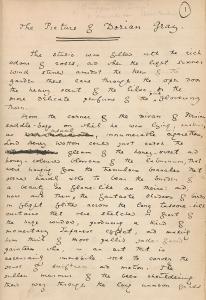 1
The Picture of Dorian Gray.
The studio was filled with the rich
odour of roses, and when the light summer
wind stirred amidst the trees of the
garden there came through the open door
the heavy scent of the lilac, or the
more delicate perfume of the flowering
thorn.
From the corner of the divan of Persian
saddle-bags on which he was lying, smoking,
innumerable cigarettes,
Lord Henry Wotton could just catch the
gleam of the honey-sweet and
honey-coloured blossoms of the laburnum, that
whose tremulous branches
seemed hardly able to bear the burden of
a beauty so flame-like as theirs: and,
now and then, the fantastic shadows of birds
in flight flitted across the long tussore-silk
curtains that were stretched in front of
the huge window, producing a kind of
momentary Japanese effect, and making
him think of
painters who, in an art that is
necessarily immobile, seek to convey the
sense of swiftness and motion. The
sullen murmur of the bees shouldering
their way through the long unmown grass